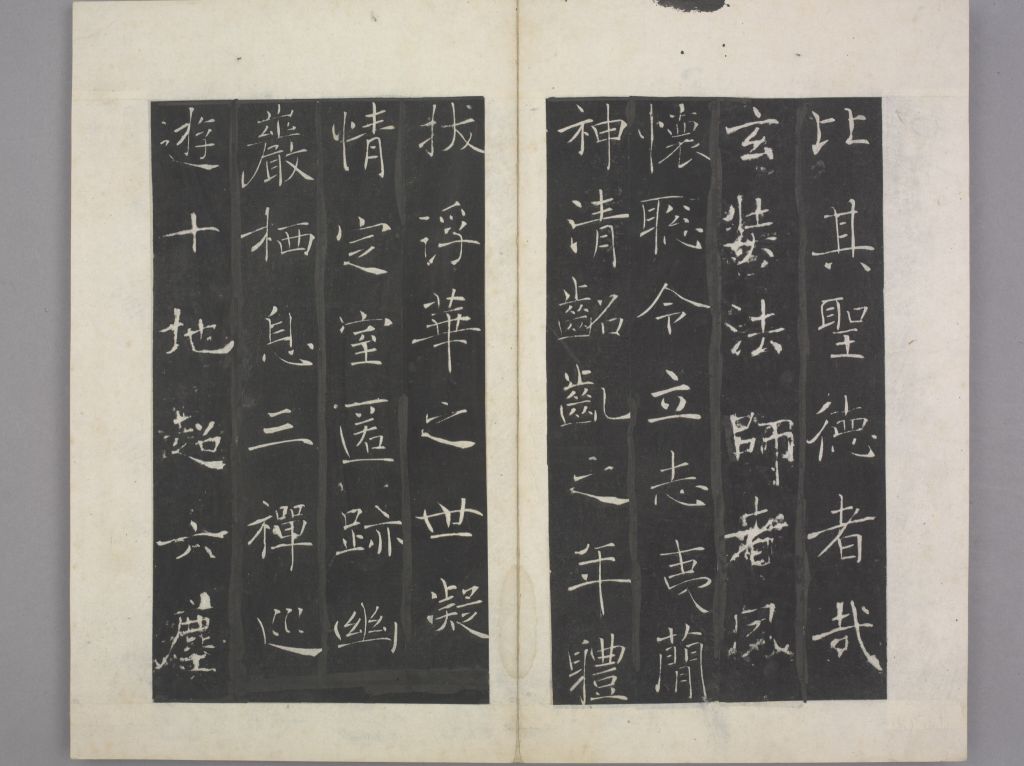 比其聖德者哉
玄奘法師者夙
懷聰令立志夷簡
神清齠齔之年體
拔浮華之世凝
情定室匿跡幽
巖栖息三禪巡
遊十地超六塵